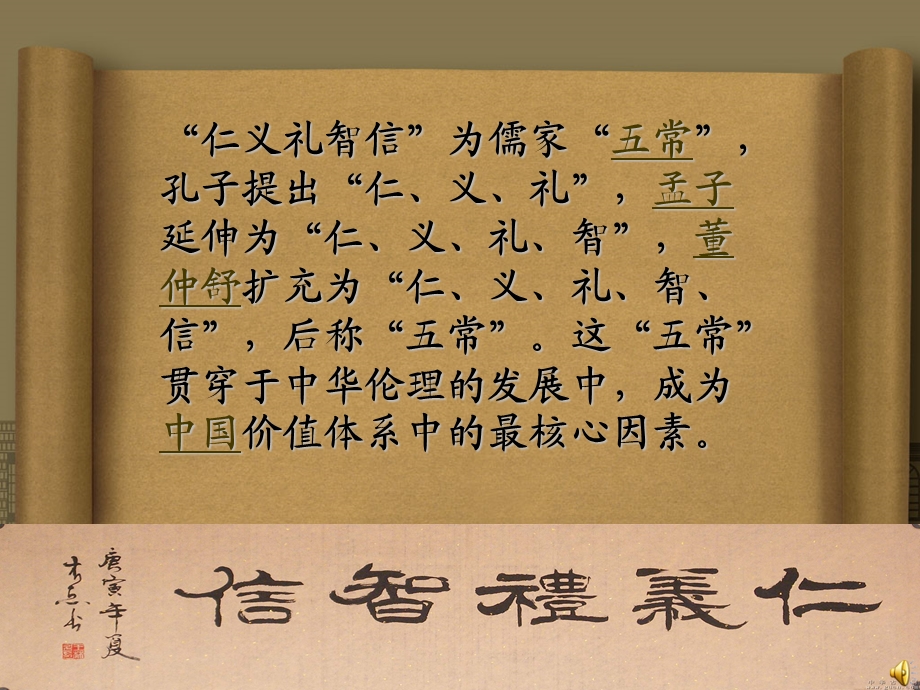 “仁义礼智信”为儒家“五常”，
孔子提出“仁、义、礼”，孟子
延伸为“仁、义、礼、智”，董
仲舒扩充为“仁、义、礼、智、
信”，后称“五常”。这“五常”
贯穿于中华伦理的发展中，成为
中国价值体系中的最核心因素。
仁義禮智信
庚寅年夏